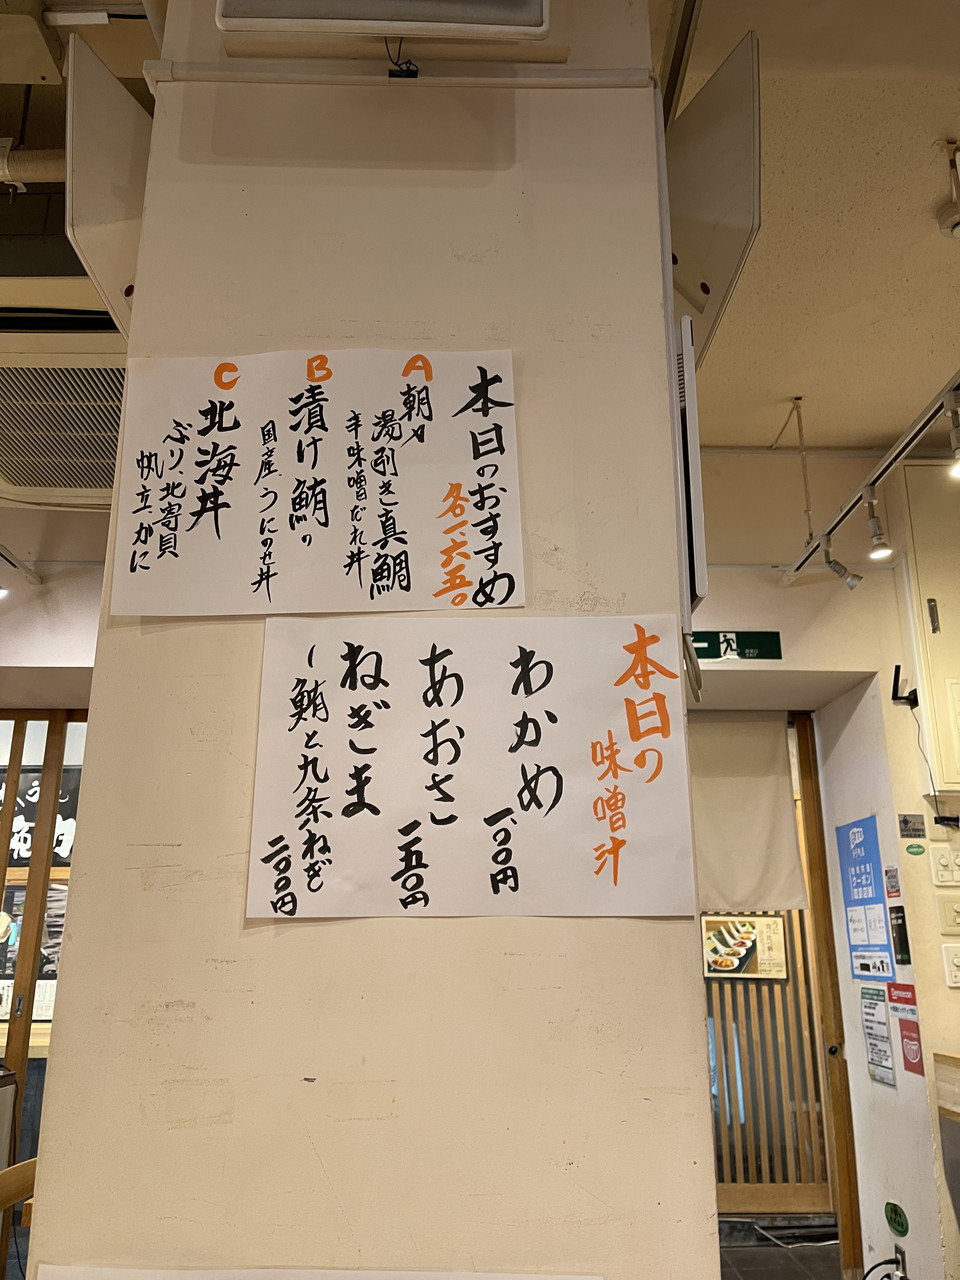 本日のおすすめ
各一、六五〇
A
朝〆
湯引き真鯛
辛味噌だれ丼
B
漬け鮪の
国産うにのせ丼
C
北海丼
ぶり、北寄貝
帆立、かに
本日の
味噌汁
わかめ
一〇〇円
あおさ
一五〇円
ねぎま
鮪と九条ねぎ
二〇〇円
クーポン